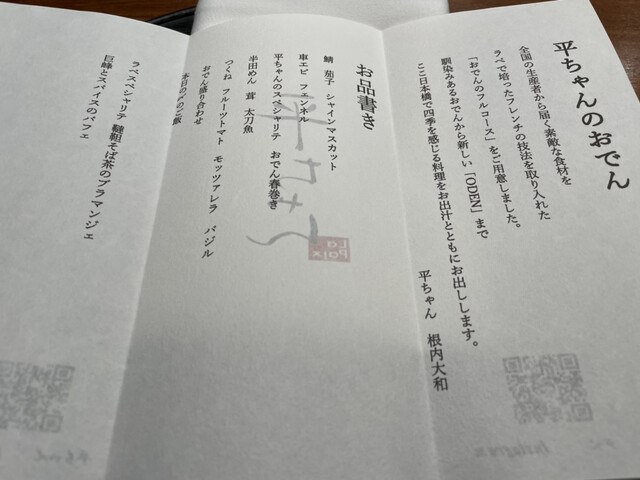 平ちゃんのおでん
全国の生産者から届く素敵な食材を
ラペで培ったフレンチの技法を取り入れた
「おでんのフルコース」をご用意しました。
馴染みあるおでんから新しい「ODEN」まで
ここ日本橋で四季を感じる料理をお出汁とともにお出しします。
平ちゃん 根内大和
お品書き
鯖 茄子 シャインマスカット
車エビ フェンネル
平ちゃんのスペシャリテ おでん春巻き
半田めん 茸 太刀魚
つくね フルーツトマト モッツァレラ バジル
おでん盛り合わせ
本日の〆のご飯
ラペスペシャリテ 韃靼そば茶のブランマンジェ
巨峰とスパイスのパフェ
平ちゃん
La Paix
Instagram